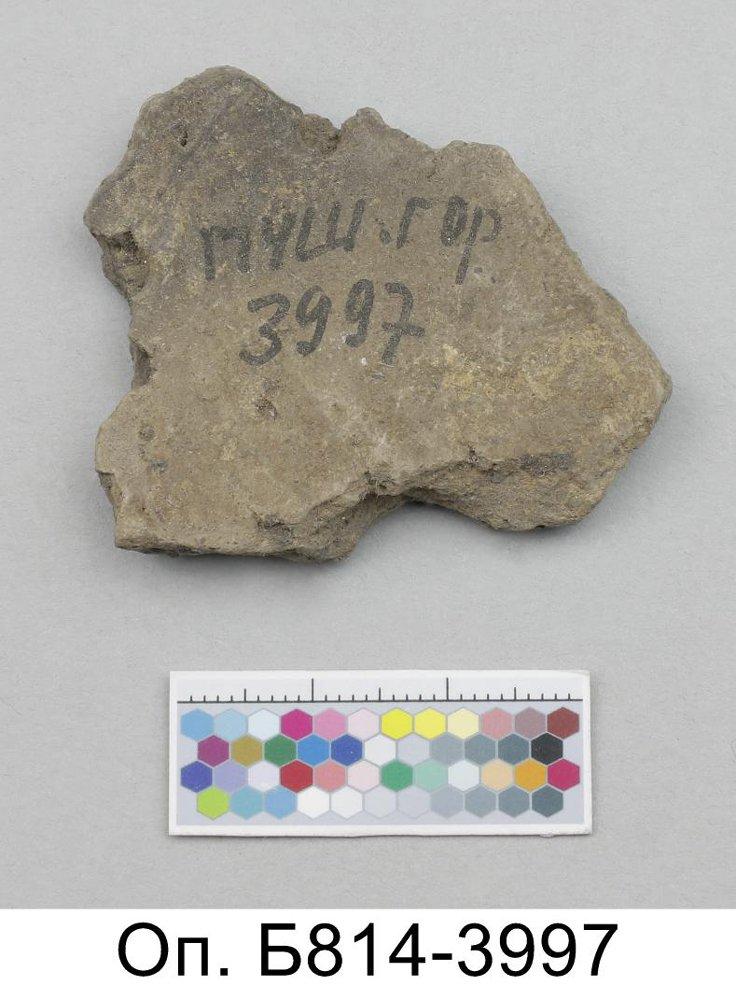 пчш.гор
3997
Оп. Б814-3997